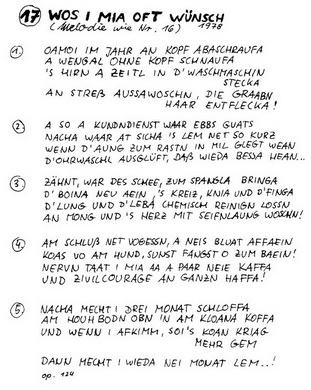 17 WOS I MIA OFT WÜNSCH
(Melodie wie Nr. 16) 1978
1. OAMOI IM JAHR AN KOPF ABASCHRAUFA
A WENGAL OHNE KOPF SCHNAUFA
'S HIRN A ZEITL IN D'WASCHMASCHIN
STECKA
AN STREß AUSSAWOSCHN, DIE GRAABN
HAAR ENTFLECKA!
2. A SO A KUNDNDIENST WAAR EBBS GUATS
NACHA WAAR AT SICHA 'S LEM NET SO KURZ
WENN D'AUNG ZUM RASTN IN MIL GLEGT WEAN
D'OHRWASCHL AUSGLÜFT, DAß WIEDA BESSA HEAN...
3. ZÄHNT, WAR DES SCHEE, ZUM SPANGLA BRINGA
D'BOINA NEU AEIN, 'S KREIZ, KNIA UND D'FINGA
D'LUNG UND D'LEBÁ CHEMISCH REINIGN LOSSN
AN MONG UND 'S HERZ MIT SEIFNLAUNG WOSCHN!
4. AM SCHLUß NET VOGESSN, A NEIS BLUAT AFFAEIN
KOAS VO AM HUND, SUNST FANGST O ZUM BAEIN!
NERVN TAAT I MIA AA A PAAR NEIE KAFFA
UND ZIVILCOURAGE AN GANZN HAFFA!
5. NACHA MECHT I DREI MONAT SCHLOFFA
AM HOUH BODN OBN IN AM KLOANA KOFFA
UND WENN I AFKIMM, SOI'S KOAN KRIAG
MEHR GEM
DANN MECHT I WIEDA NEI MONAT LEM..!
op. 124